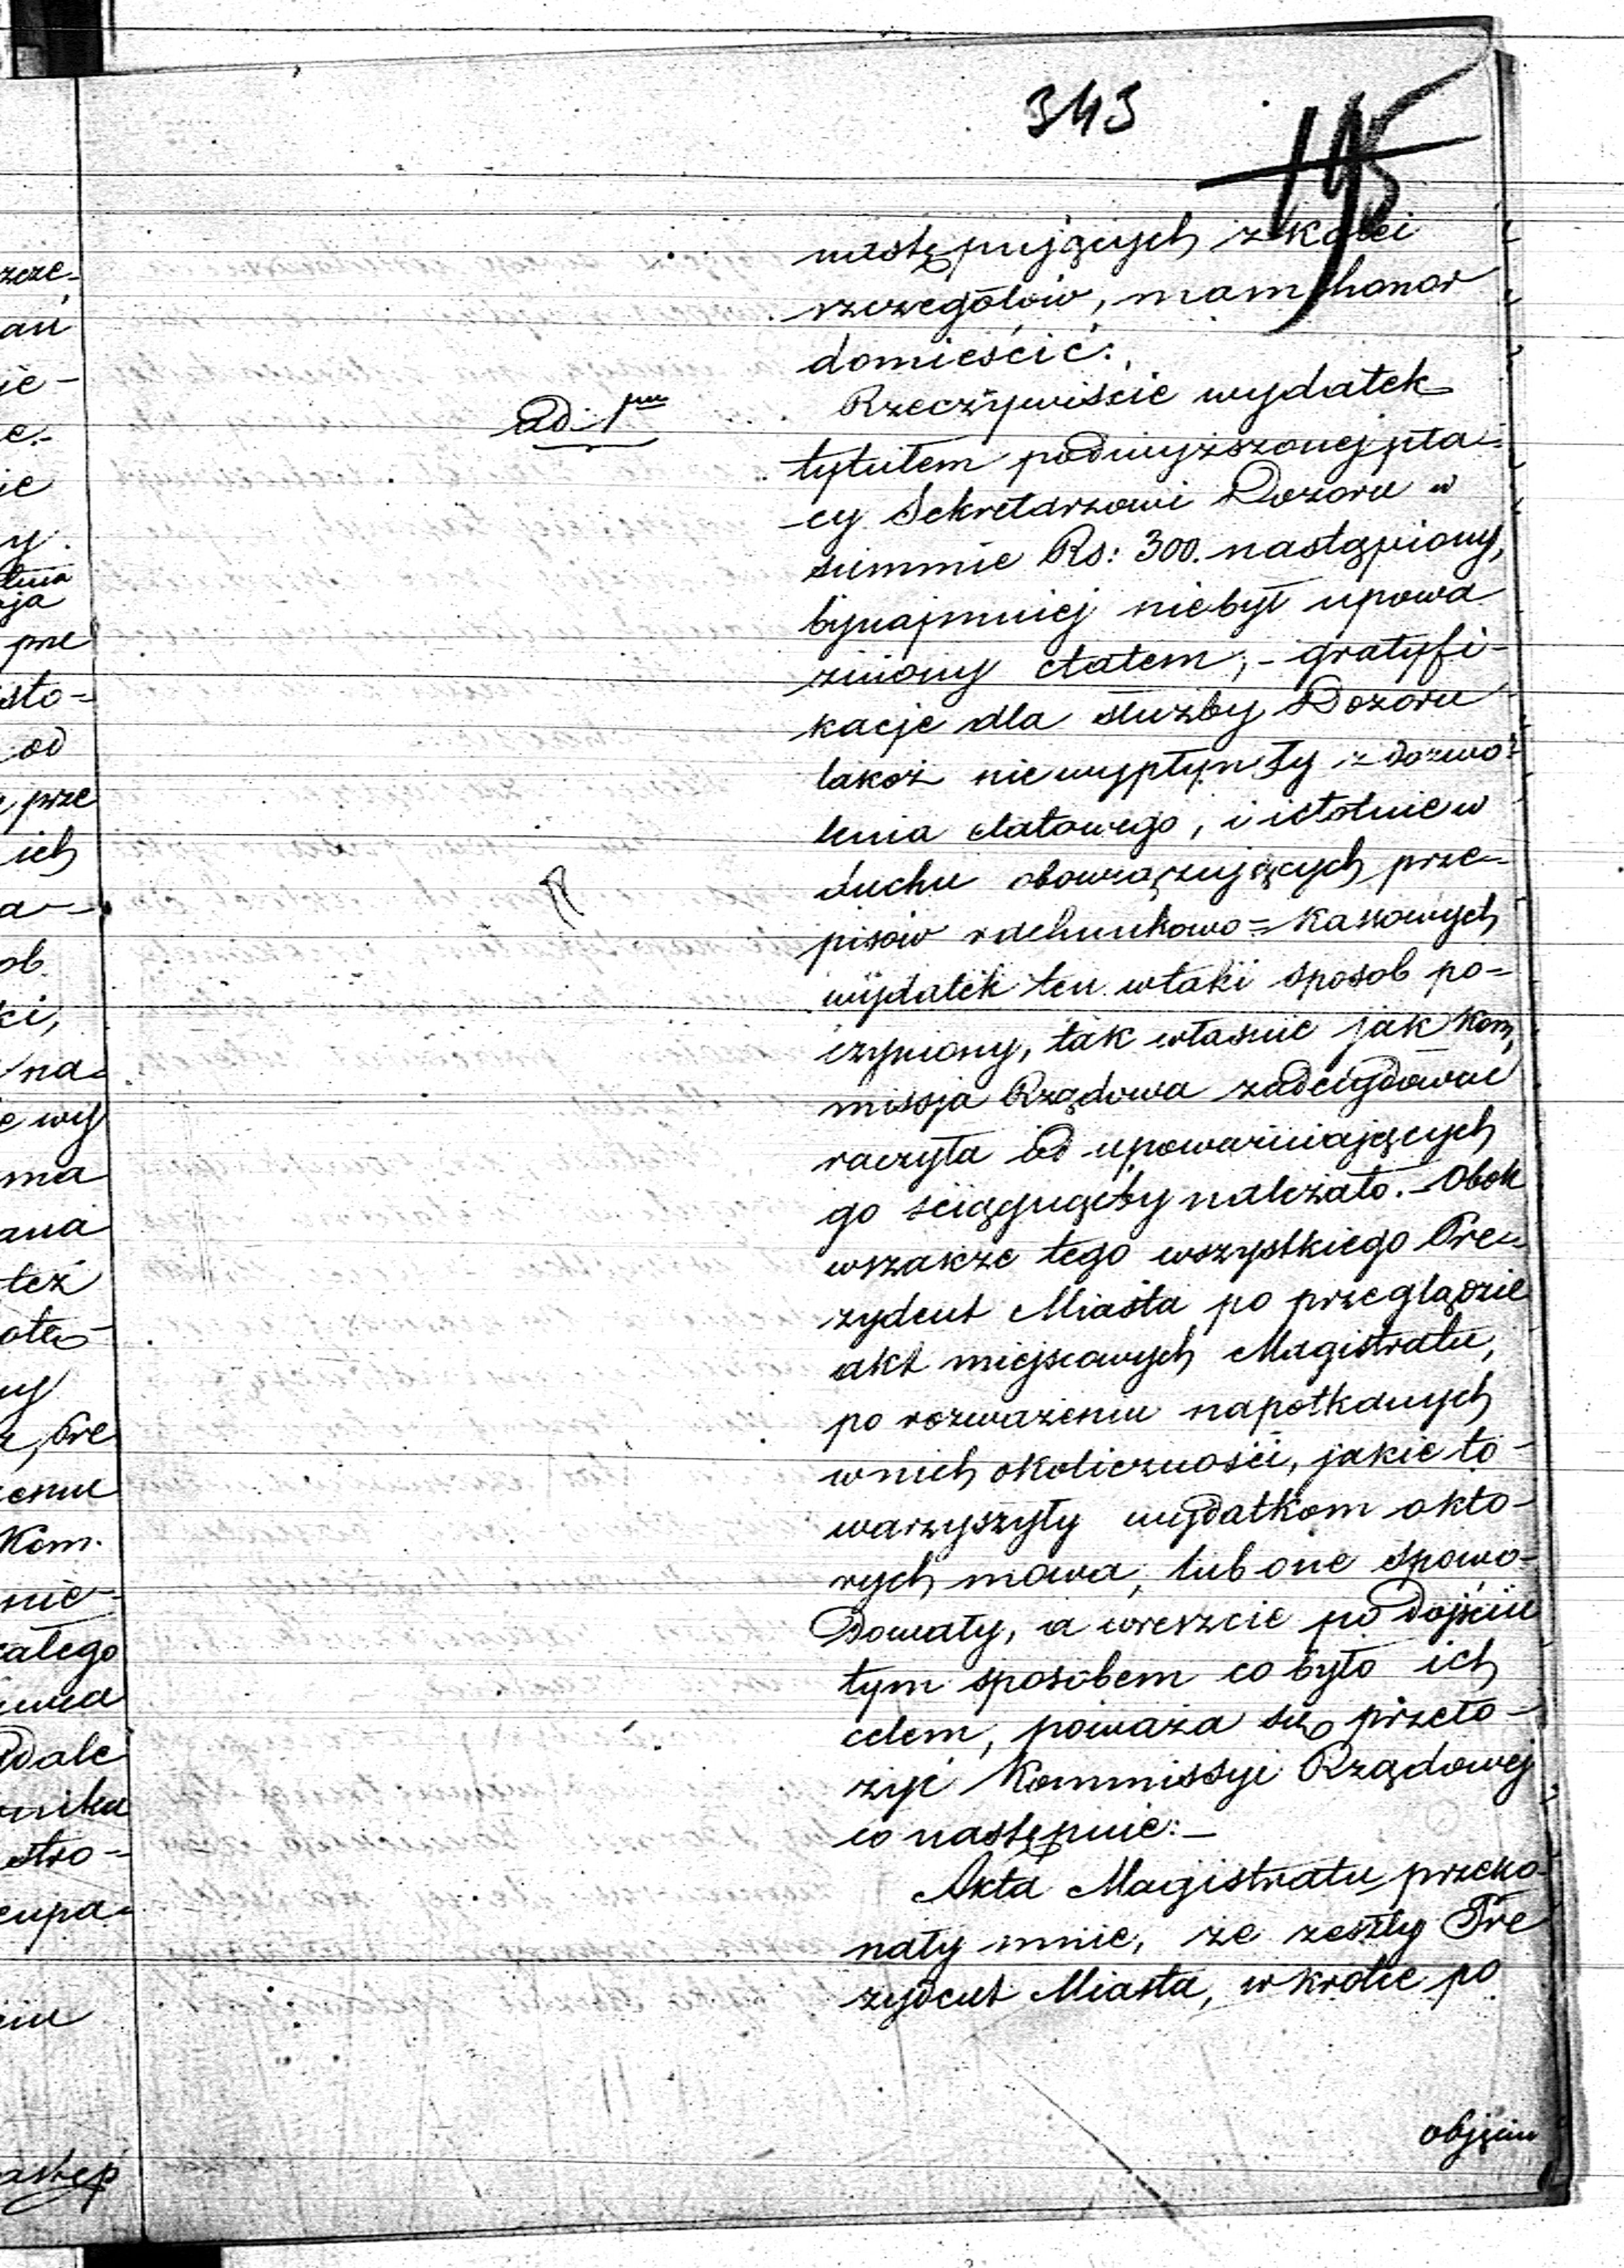 343
195
następujących z kolei
szczegółów, mam honor
domieścić:
ad 1mm
Rzeczywiście wydatek
tytułem podwyższonej pła-
-cy Sekretarzowi Dozoru w
summie Rs: 300. nastąpiony,
bynajmniej niebył upowa
żniony etatem, - gratyfi-
kacje dla służby Dozoru
takoż niewypłynęły z dozwo-
lenia etatowego, i istotnie w
duchu obowiązujących prze-
pisów rachunkowo=kassowych
wydatek ten wtaki sposob po-
czyniony, tak własnie jak Kom,
missja Rządowa zadecydować
raczyła od upoważniających
go ściągnąćby należało. - Obok
wszakże tego wszystkiego Pre-
zydent Miasta po przeglądzie
akt miejscowych Magistratu,
po rozważeniu napotkanych
wnich okoliczności, jakie to-
warzyszyły wydatkom o kto-
rych mowa, lub one spowo-
dowały, a wreszcie po dojściu
tym sposobem co było ich
celem, poważa się przeło-
żyć Kommissyi Rządowej
co następuie: -
Akta Magistratu przeko-
nały mnie, że zeszły Pre
zydent Miasta, wkrotce po
objęciu
zcze-
ań
ie-
e.-
ie
y.
ja
pre
sto=
od
prze
ich
a-
ob
ki,
na-
e wy
ma
ana
też
ote-
ny
Pre
enu
Kom.
nie-
całego
wa
dale
nika
stro-
cupa-
iu
astęp